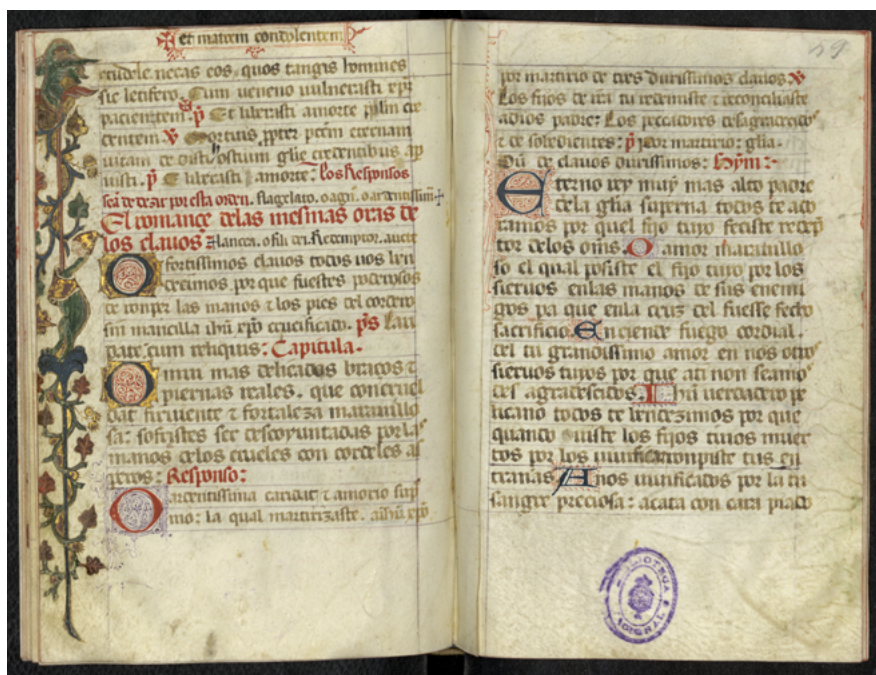 et matrem condolentem
crudele necas eos, quos tangis homines
sic letifero. Cum veneno vulnerasti xpm
pacientem. p Et liberasti amorte
centem. v Mortuis ppter eternam
vitam dedisti ostium glie credentibus
p E liberasti amorte: Los Responsos
sea de dezir por esta orden. flagelato. o agni. o ardentissim
El romance delas mesmas oras de
los clavos lancea. o fili dei. Redemptor.
O fortissimos clavos todos vos ben
decimos, por que fuestes poderosos
de romper las manos z los pies del cordero
sin mancilla ihu xpo crucificado. ps Lau
date. cum reliquis: Capitula.
O mui mas delicados braços z
piernas reales. que con cruel
dat firviente z fortaleza maravillo
sa: sofristes ser descoyuntadas por las
manos delos crueles con cordeles as
peros: Responso:
O ardentissima caridat z amorio sup
mo: la qual martirizaste. a ihu xpo
29
por martirio de tres durissimos clavos v
Los fijos de tu redemiste z reconciliaste
adios padre: Los peccadores desagradecidos
z desobedientes: p por martirio: glia.
De clavos durissimos: Hym:
Eterno rey muy mas alto padre
dela glia superna todos te ado
ramos por quel fijo tuyo feciste redep
tor delos oms. O amor maravillo
so el qual posiste el fijo tuyo por los
siervos enlas manos de sus enemi
gos pa que enla cruz del fuesse fecho
sacrificio. Enciende fuego cordial.
del tu grandissimo amor en nos otros
siervos tuyos por que ati non seamos
desagradescidos. Ihu verdadero pe
licano todos te bendezimos por que
quando oviste los fijos tuyos muer
tos por los vivificar ronpiste tus en
tranas. A nos vivificados por la tu
sangre preciosa: acata con cara piado
BIBLIOTECA
NACIONAL